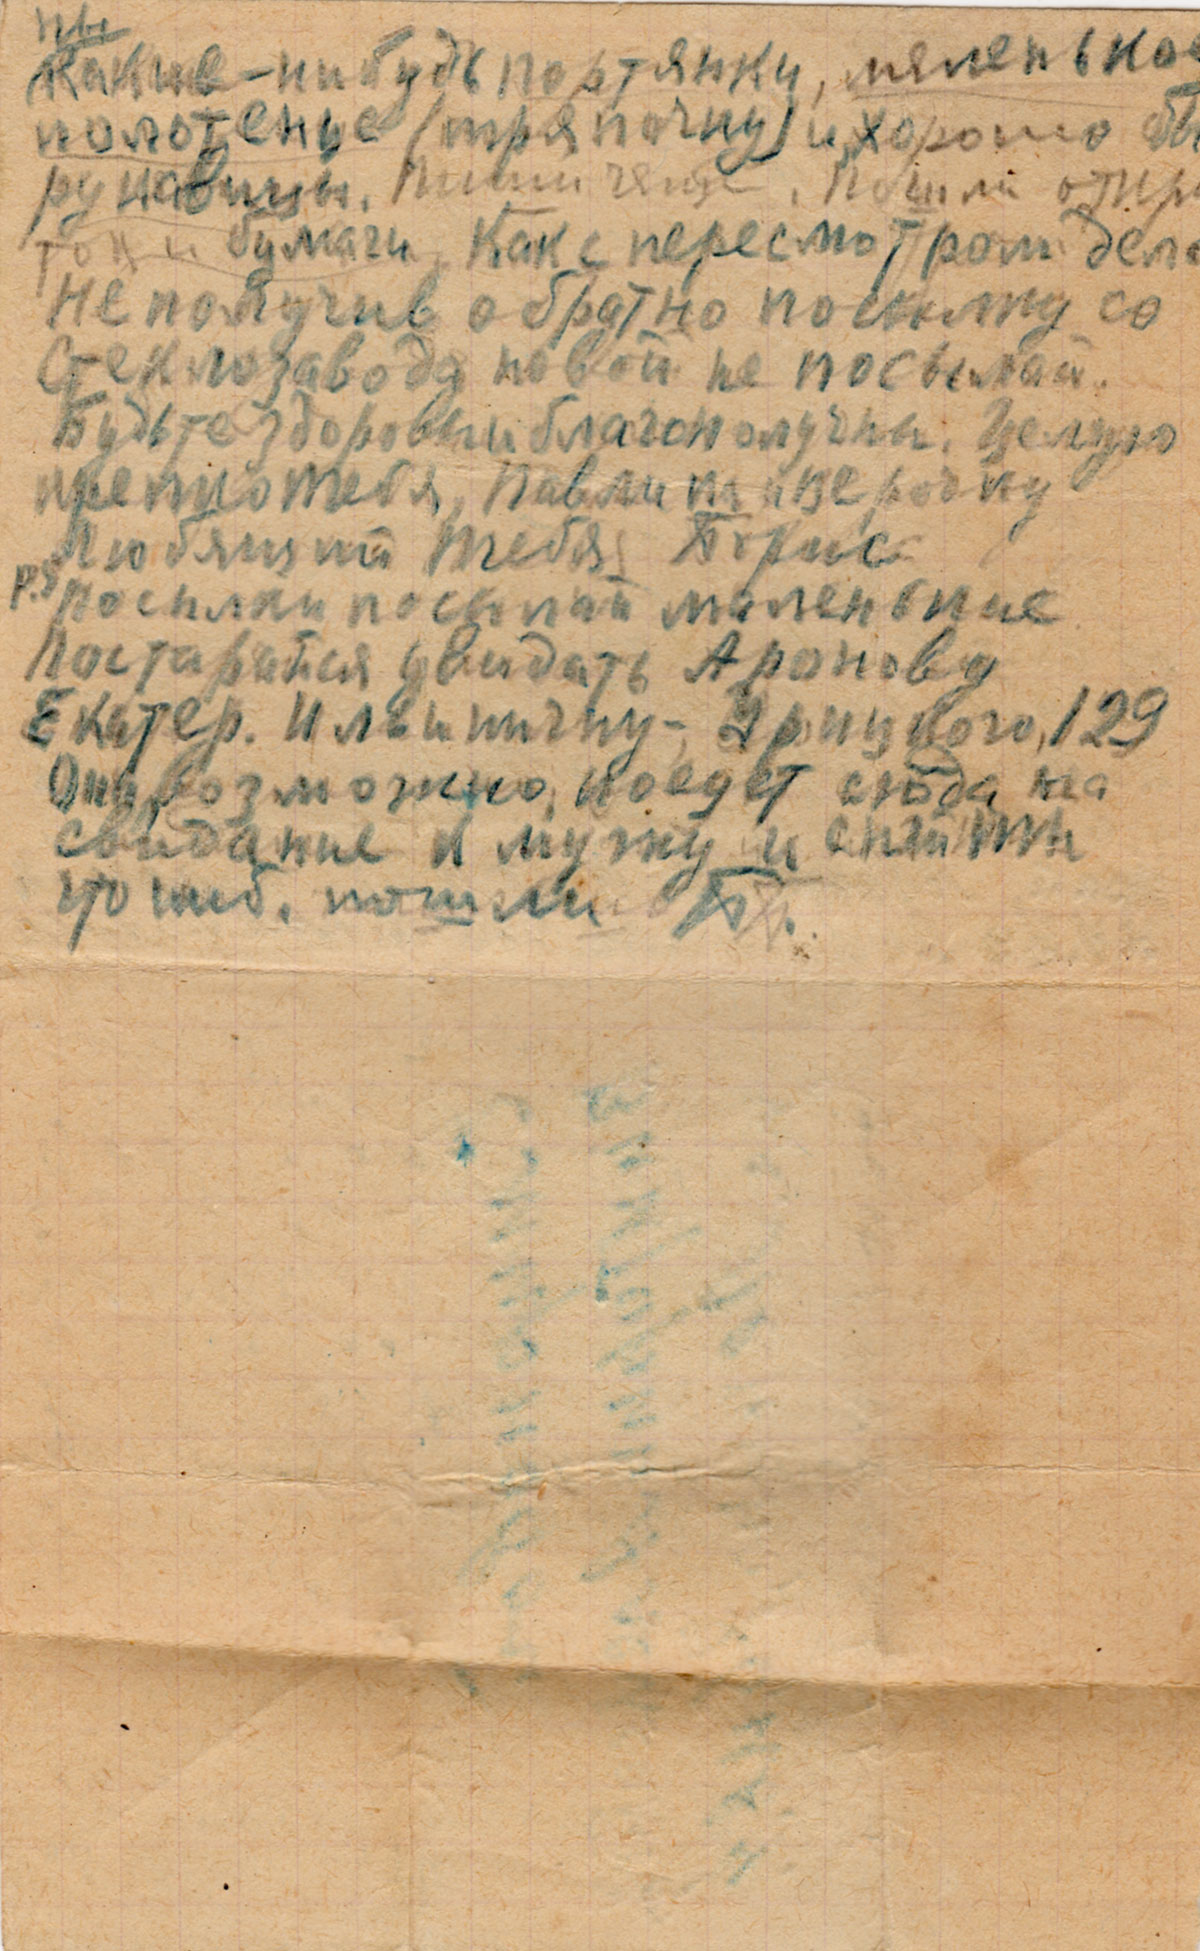 пы
Какие-нибудь портянки, маленькое
полотенце (тряпочку) и хорошо бы
рукавицы. Пиши чаще. Пошли откры
ток и бумаги. Как с пересмотром дела
Не получив обратно посылку со
Стеклозавода новой не посылай.
Будьте здоровы и благополучны. Целую
крепко тебя, Павлика и Верочку
Любящий тебя Борис
P.S. Посылки посылай маленькие
Постарайся увидать Аронову
Екатер. Ильиничну-, Урицкого, 129
Она, возможно, поедет сюда на
свидание к мужу и с ней
что ниб. пошли Б.